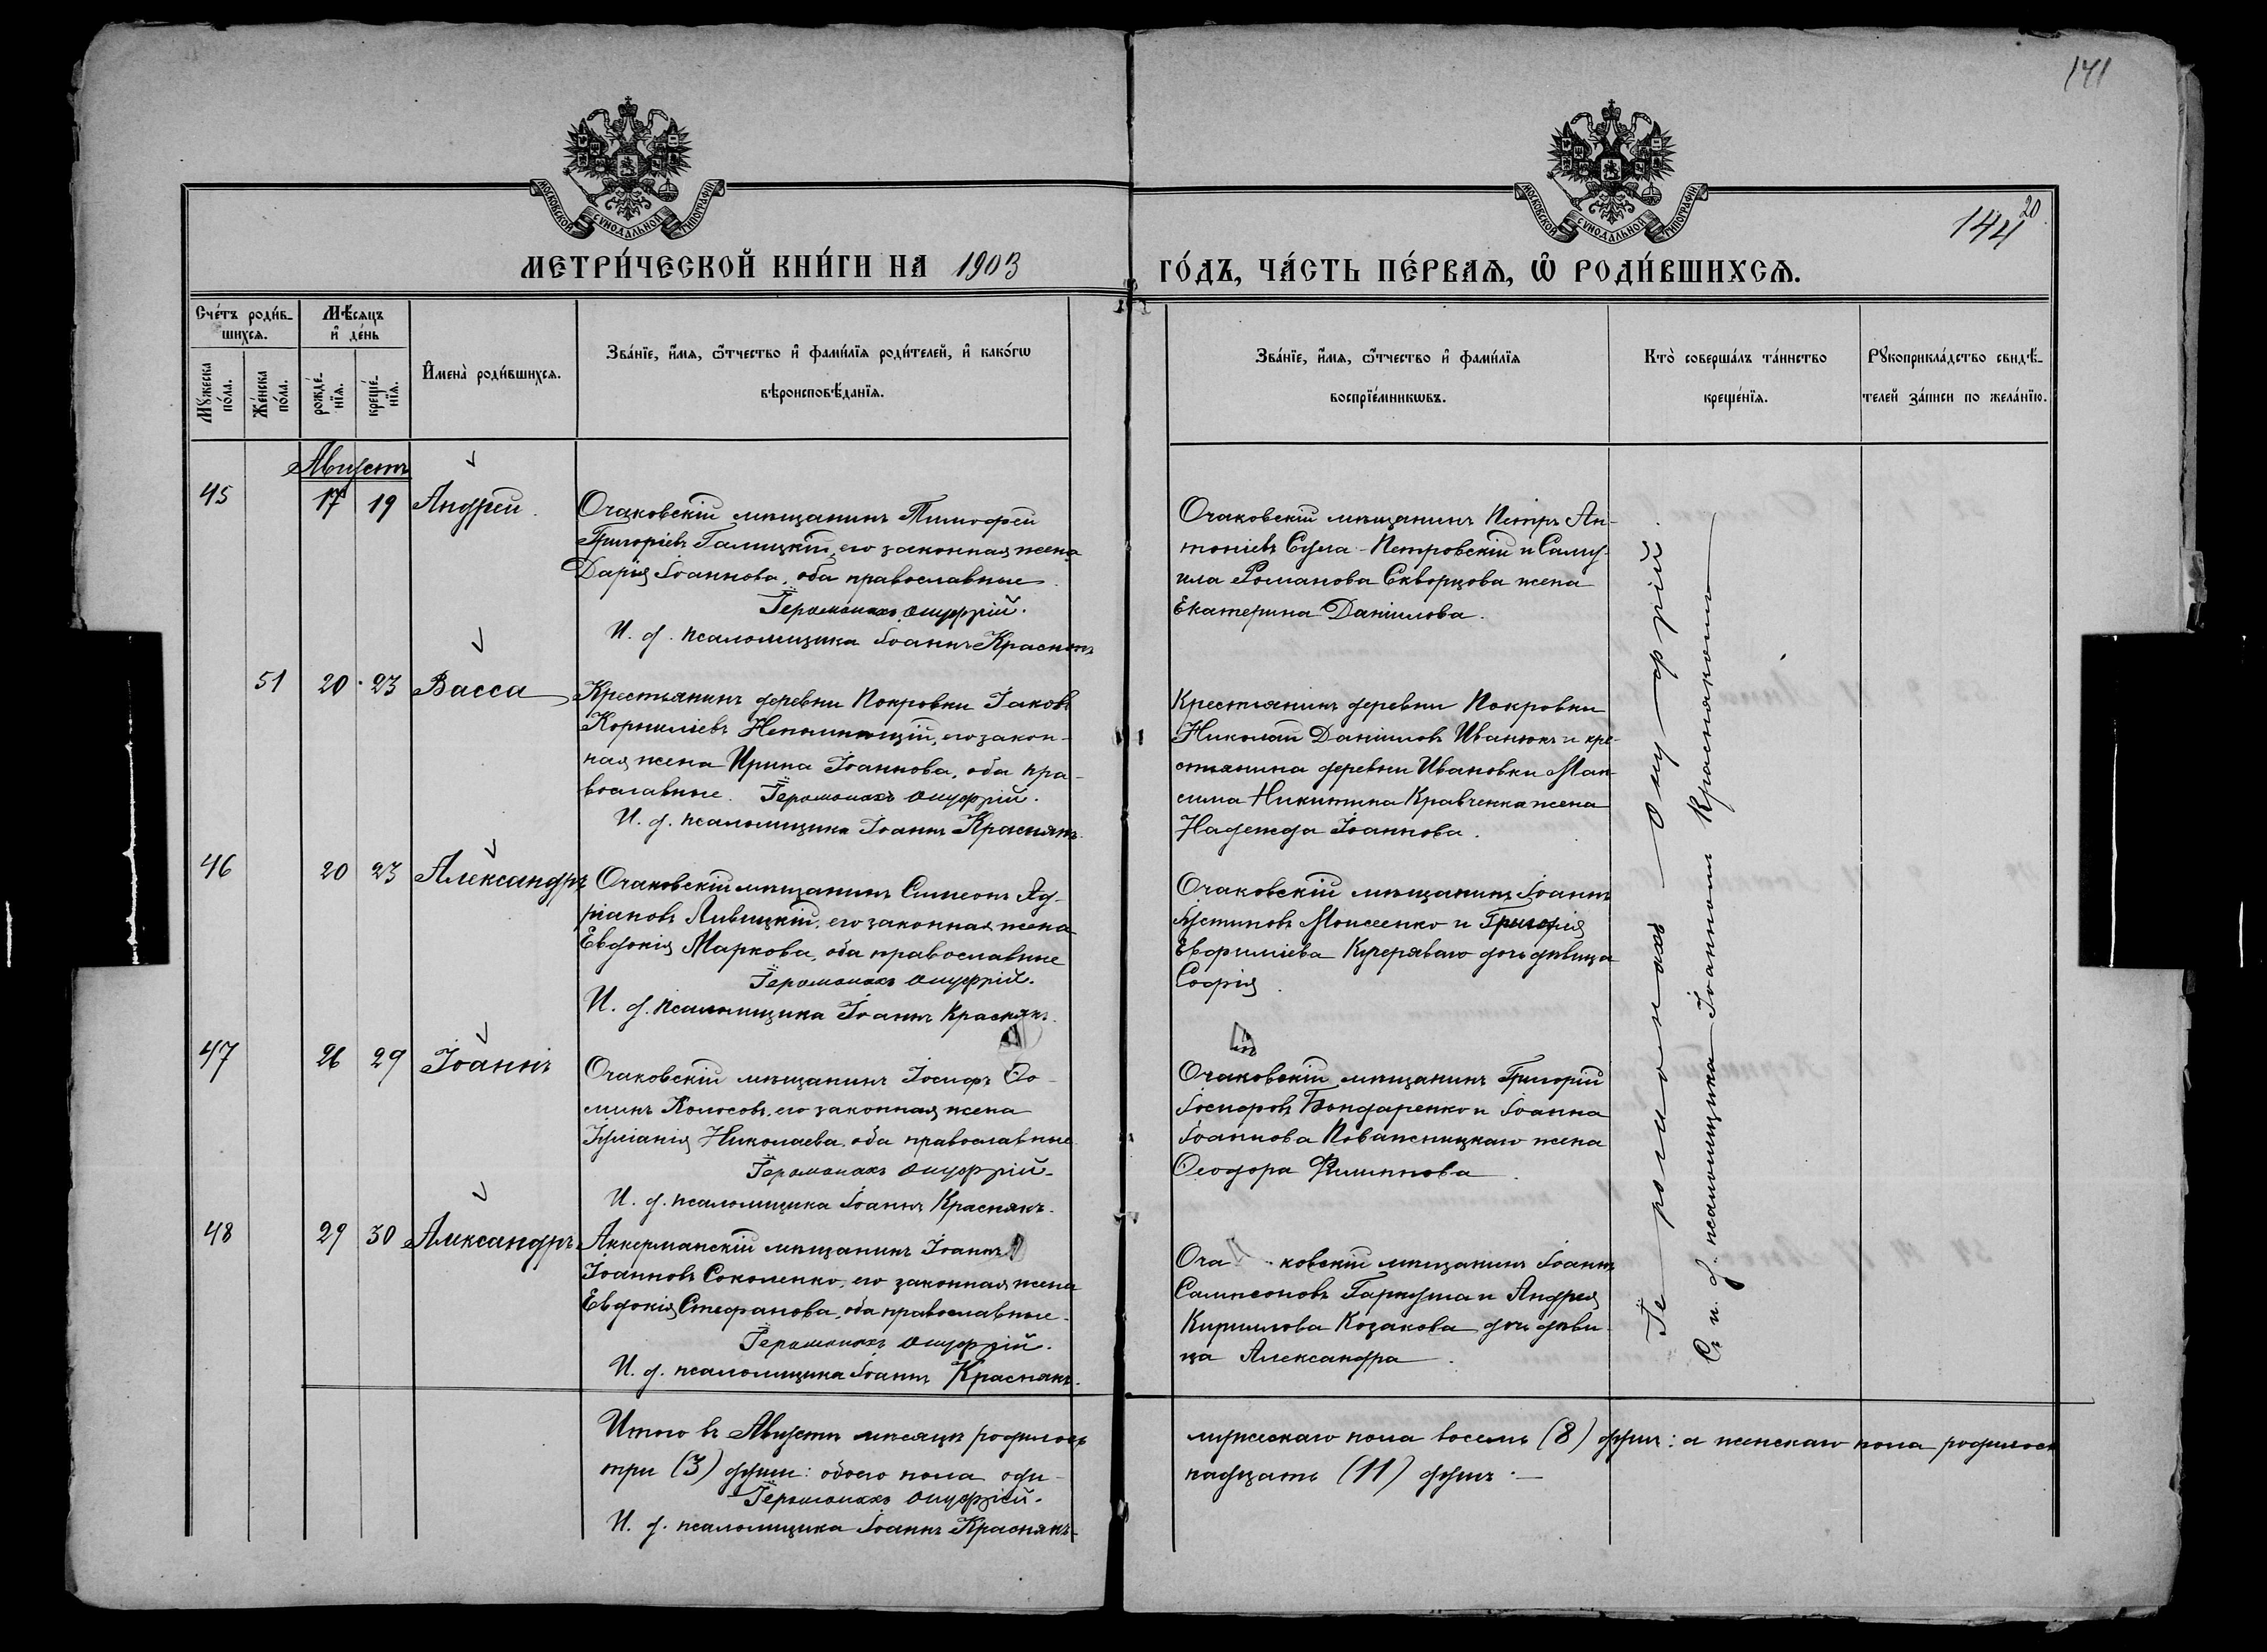 141
МОСКОВСКОЙ СѴНОДАЛЬНОЙ ТИПОГРАФІИ
МОСКОВСКОЙ СѴНОДАЛЬНОЙ ТИПОГРАФІИ
144 20
МЕТРИ́ЧЕСКОЙ КНИ́ГИ НА 1903
ГО́ДЪ, ЧА́СТЬ ПЕ́РВАѦ, Ѽ РОДИ́ВШИХСѦ.
Сче́тъ роди́в-
шихсѧ.
Мѣ́сѧцъ
и҆ де́нь
Мꙋ́жеска
по́ла.
Же́нска
по́ла.
рожде́-
нїѧ.
креще́-
нїѧ.
И҆мена̀ роди́вшихсѧ.
Зва́нїе, и҆́мѧ, ѻ҆́тчество и҆ фами́лїѧ роди́телей, и҆ како́гѡ
вѣроисповѣ́данїѧ.
Зва́нїе, и҆́мѧ, ѻ҆́тчество и҆ фами́лїѧ
воспрїе́мникѡвъ.
Кто̀ соверша́лъ та́инство
креще́нїѧ.
Рꙋкоприкла́дство свидѣ́-
телей за́писи по жела́нїю.
Августъ
45 17 19 Андрей.
Очаковскій мѣщанинъ Тимофей
Григоріевъ Галицкій, его законная жена
Дарія Іоаннова, оба православные.
Іеромонахъ Онуфрій.
И. д. псаломщика Іоаннъ Краснякъ
Очаковскій мѣщанинъ Петръ Ан-
тоніевъ Сула-Петровскій и Саму-
ила Романова Скворцова жена
Екатерина Даніилова.
51 20 23 Васса
Крестьянинъ деревни Покровки Іаковъ
Корниліевъ Непиющій, его закон-
ная жена Ирина Іоаннова, оба пра-
вославные. Іеромонахъ Онуфрій.
И. д. псаломщика Іоаннъ Краснякъ.
Крестьянинъ деревни Покровки
Николай Даніиловъ Иванюкъ и кре-
стьянина деревни Ивановки Мак-
сима Никитина Кравченка жена
Надежда Іоаннова.
46 20 23 Александръ
Очаковскій мѣщанинъ Симеонъ Ад-
ріановъ Ливицкій, его законная жена
Евдокія Маркова, оба православные
Іеромонахъ Онуфрій.
И. д. псаломщика Іоаннъ Краснякъ.
Очаковскій мѣщанинъ Іоаннъ
Іустиновъ Моисеенко и Григорія
Евфиміева Кучеряваго дочь дѣвица
Софія.
47 26 29 Іоаннъ
Очаковскій мѣщанинъ Іосифъ Ѳо-
минъ Колосовъ, его законная жена
Іуліанія Николаева, оба православные.
Іеромонахъ Онуфрій.
И. д. псаломщика Іоаннъ Краснякъ.
Очаковскій мѣщанинъ Григорій
Іосифовъ Бондаренко и Іоанна
Іоаннова Поважницкаго жена
Ѳеодора Филиппова.
48 29 30 Александръ.
Аккерманскій мѣщанинъ Іоаннъ
Іоанновъ Соколенко, его законная жена
Евдокія Стефанова, оба православные.
Іеромонахъ Онуфрій.
И. д. псаломщика Іоаннъ Краснякъ.
Очаковскій мѣщанинъ Іоаннъ
Сампсоновъ Гаркуша и Андрея
Кириллова Козакова дочь дѣви-
ца Александра.
Іеромонахъ Онуфрій.
Съ и. д. псаломщика Іоанномъ Краснякомъ
Итого въ Августѣ мѣсяцѣ родилось
мужескаго пола восемь (8) душъ: а женскаго пола родилось
три (3) души: обоего пола оди-
надцать (11) душъ.
Іеромонахъ Онуфрій.
И. д. псаломщика Іоаннъ Краснякъ.